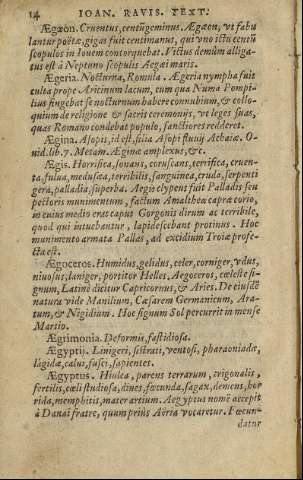 14 IOAN. RAVIS. TEXT.
Ægæon. Cruentus, centũgeminus. Ægæon, vt fabu
lantur poëtæ, gigas fuit centimanus, qui vno ictu centũ
scopulos in Iouem contorquebat. Victus demùm alliga-
tus est à Neptuno scopulis Aegæi maris.
Ægeria. Nocturna, Romula. Ægeria nympha fuit
culta prope Aricinum lacum, cum qua Numa Pompi-
lius fingebat se nocturnum habere connubium, & collo-
quium de religione & sacris ceremonijs, vt leges suas,
quas Romano condebat populo, sanctiores redderet.
Ægina. Asopis, id est, filia Asopi fluuij Achaiæ. O-
uid. lib. 7. Metam. Æginæ amplexus, &c.
Ægis. Horrifica, sonans, coruscans, terrifica, cruen-
ta, fulua, medusæa, terribilis, sanguinea, cruda, serpenti
gera, palladia, superba. Aegis clypeus fuit Palladis seu
pectoris munimentum, factum Amaltheæ capræ corio,
in cuius medio erat caput Gorgonis dirum ac terribile,
quod qui intuebantur, lapidescebant protinus. Hoc
munimento armata Pallas, ad excidium Troiæ profe-
cta est.
Ægoceros. Humidus, gelidus, celer, corniger, vdus,
niuosus, laniger, portitor Helles, Aegoceros, cæleste si-
gnum, Latinè dicitur Capricornus, & Aries. De eiusdẽ
natura vide Manilium, Cæsarem Germanicum, Ara-
tum, & Nigidium. Hoc signum Sol percurrit in mense
Martio.
Ægrimonia. Deformis, fastidiosa.
Ægyptij. Linigeri, sistrati, ventosi, pharaoniadæ,
lagidæ, calui, fusci, sapientes.
Ægyptus. Hiulca, parens terrarum, trigonalis,
fertilis, cæli studiosa, diues, fœcunda, sagax, demens, hor
rida, memphitis, mater artium. Aegyptus nomẽ accepit
à Danai fratre, quum priùs Aëria vocaretur. Fœcun-
datur